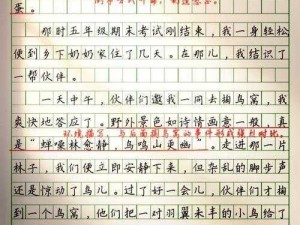 蛋。
那时五年级期末考试刚结束，我一身轻松
便到乡下奶奶家住了几天。在那儿，我结识了
一帮伙伴。
一天中午，伙伴们邀我一同去掏鸟窝，我
爽快地答应了。野外景色如诗情画意一般，真
环境描写，与后面掏鸟窝的事件形成强烈对比。
是“蝉噪林愈静，鸟鸣山更幽”。走进那一片
林子，我们便立即安静下来，但杂乱的脚步声
还是惊动了鸟儿。过了好一会儿，伙伴们才掏
到一个鸟窝，他们把一对羽翼未丰的小鸟给了